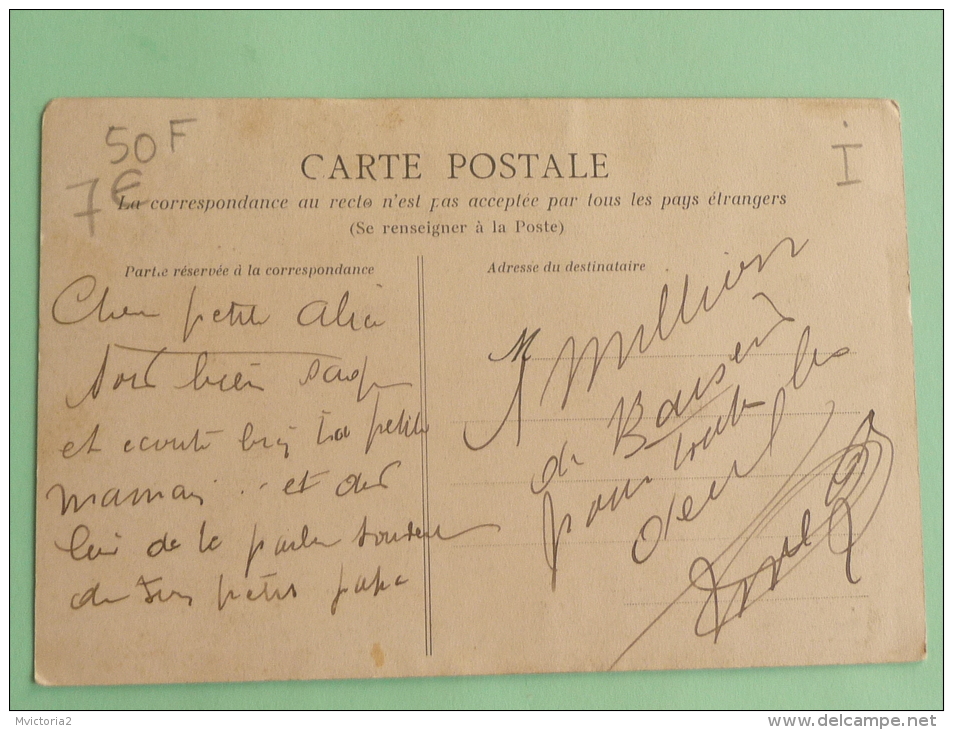 50F
7€
I
CARTE POSTALE
La correspondance au recto n'est pas acceptée par tous les pays étrangers
(Se renseigner à la Poste)
Partie réservée à la correspondance
Adresse du destinataire
Cher petite Alice
Soit bien sage
et ecoute bien ta petite
maman .. et dit
lui de te parler souvent
de ton petit papa
M
Million
de Baisers
pour toute les
deux
Mvictoria2
www.delcampe.net